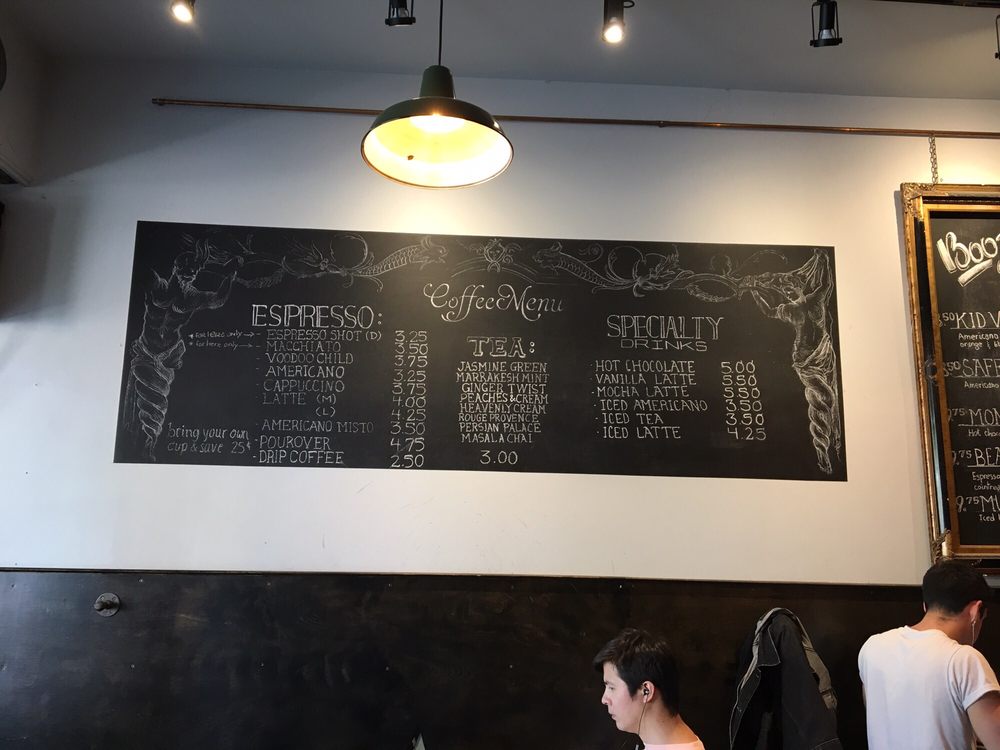 Coffee Menu
ESPRESSO:
*for here only→ ESPRESSO SHOT (D) 3.25
*for here only→ MACCHIATO 3.50
· VOODOO CHILD 3.75
· AMERICANO 3.25
· CAPPUCCINO 3.75
· LATTE (M) 4.00
(L) 4.25
· AMERICANO MISTO 3.50
· POUROVER 4.75
· DRIP COFFEE 2.50
bring your own
cup & save 25¢
TEA:
JASMINE GREEN
MARRAKESH MINT
GINGER TWIST
PEACHES & CREAM
HEAVENLY CREAM
ROUGE PROVENCE
PERSIAN PALACE
MASALA CHAI
3.00
SPECIALTY
DRINKS
· HOT CHOCOLATE 5.00
· VANILLA LATTE 5.50
· MOCHA LATTE 5.50
· ICED AMERICANO 3.50
· ICED TEA 3.50
· ICED LATTE 4.25
KID
Americano
orange &
Americano
Hot
9.75
Espresso
Iced